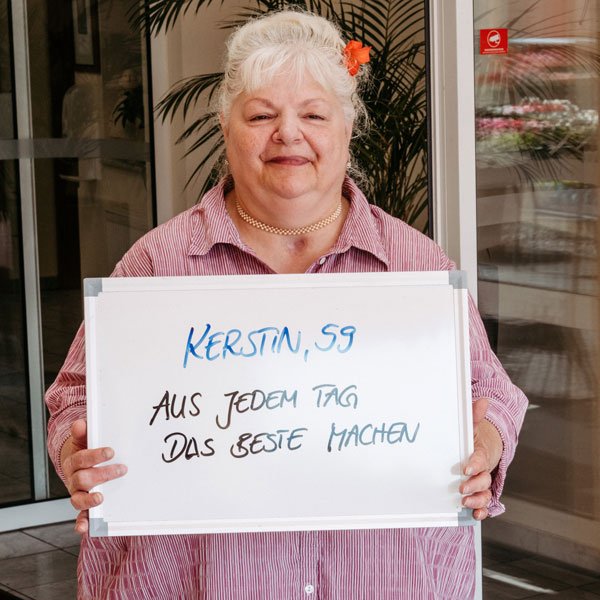 KERSTIN, 59
AUS JEDEM TAG
DAS BESTE MACHEN